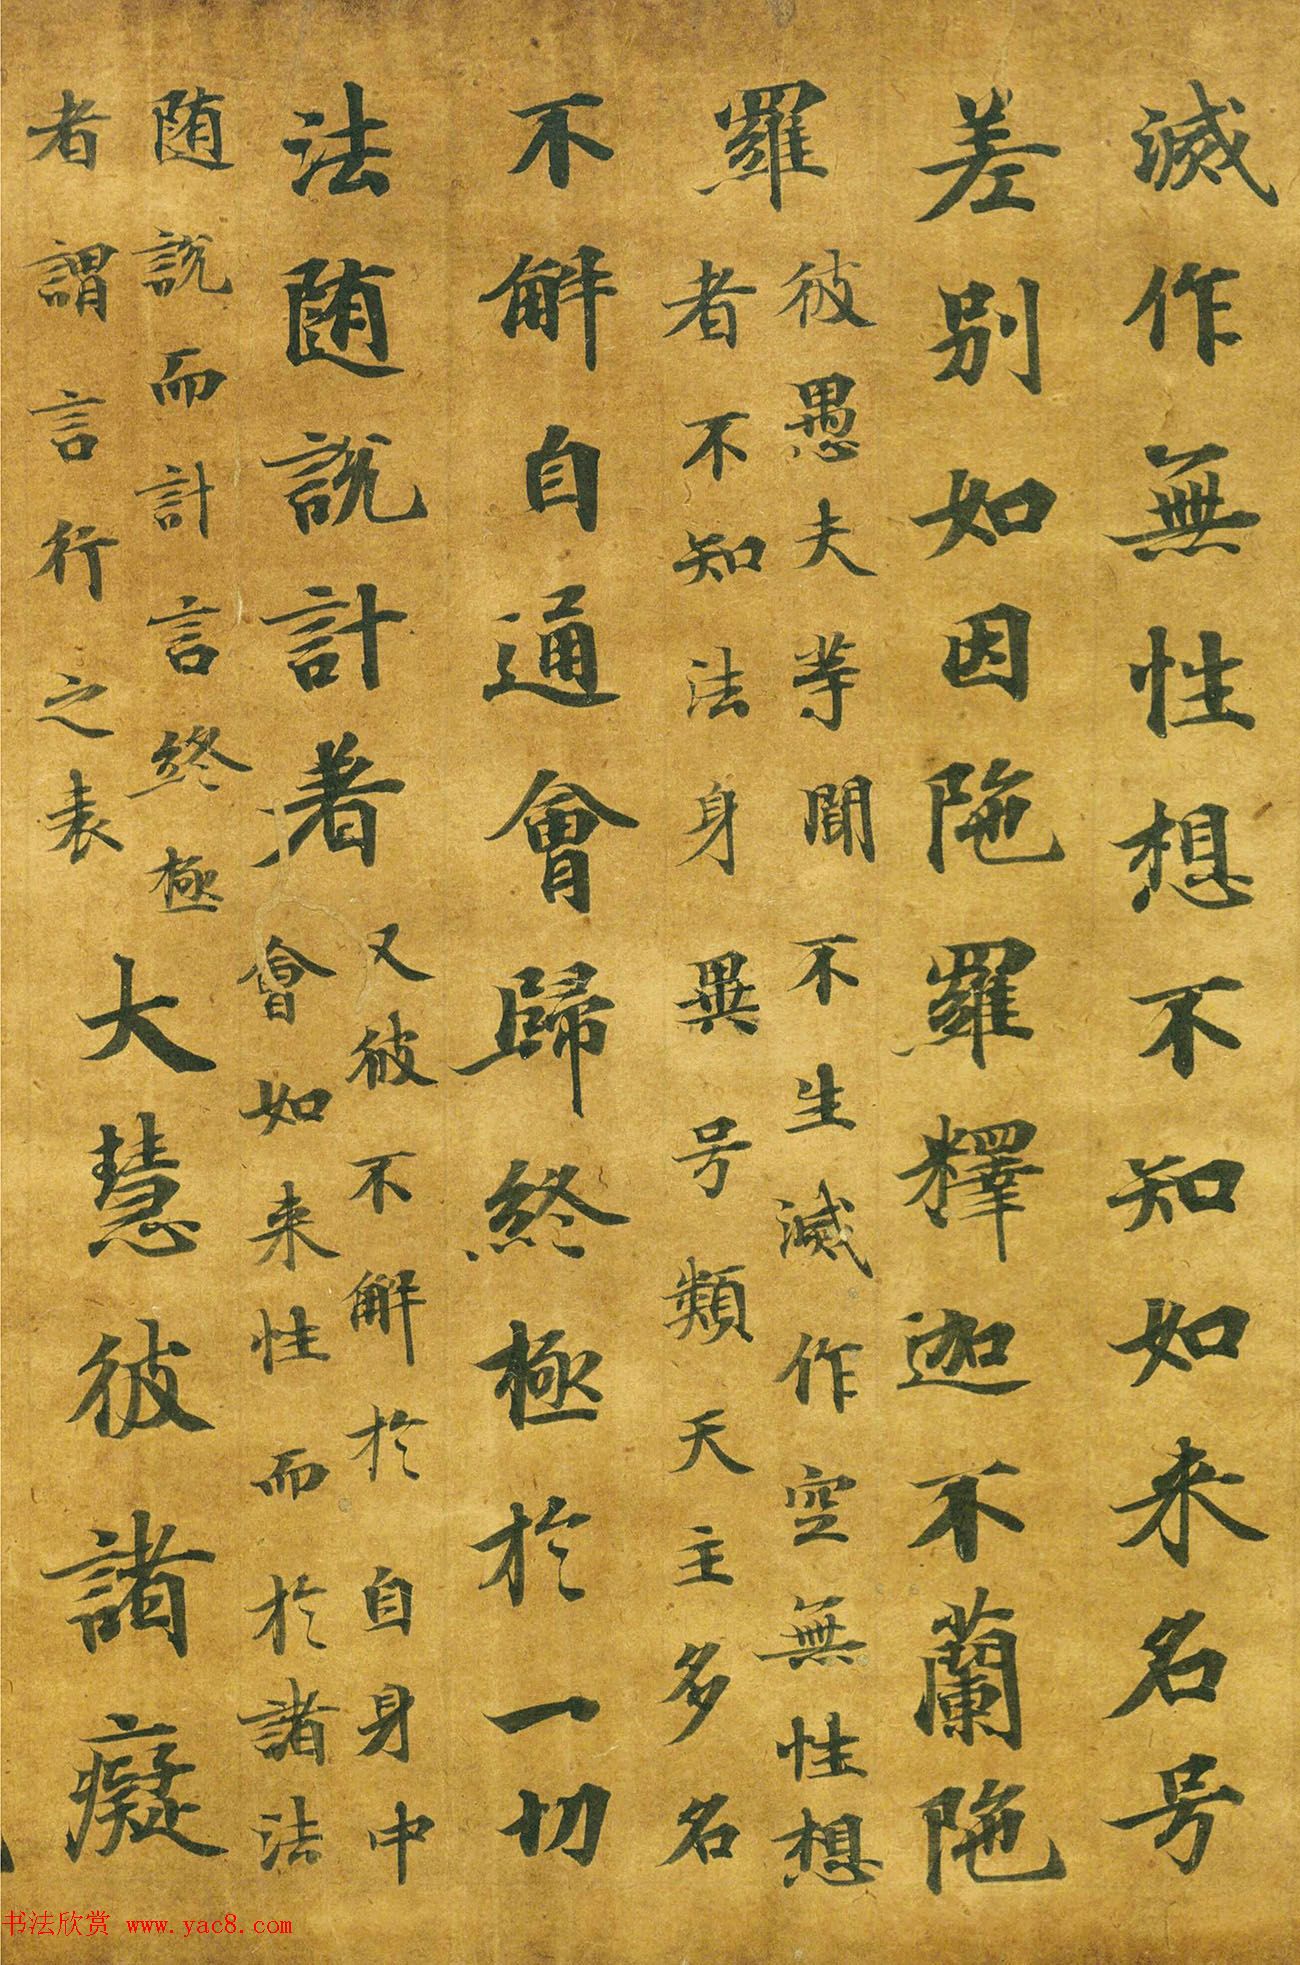 滅作無性想不知如来名号
差别如因陁羅釋迦不蘭陁
羅
彼愚夫等聞不生滅作空無性想
者不知法身異号類天主多名
不解自通會歸終極於一切
法随説計著
又彼不解於自身中
會如来性而於諸法
随説而計言終極
者謂言行之表
大慧彼諸癡
书法欣赏 www.yac8.com